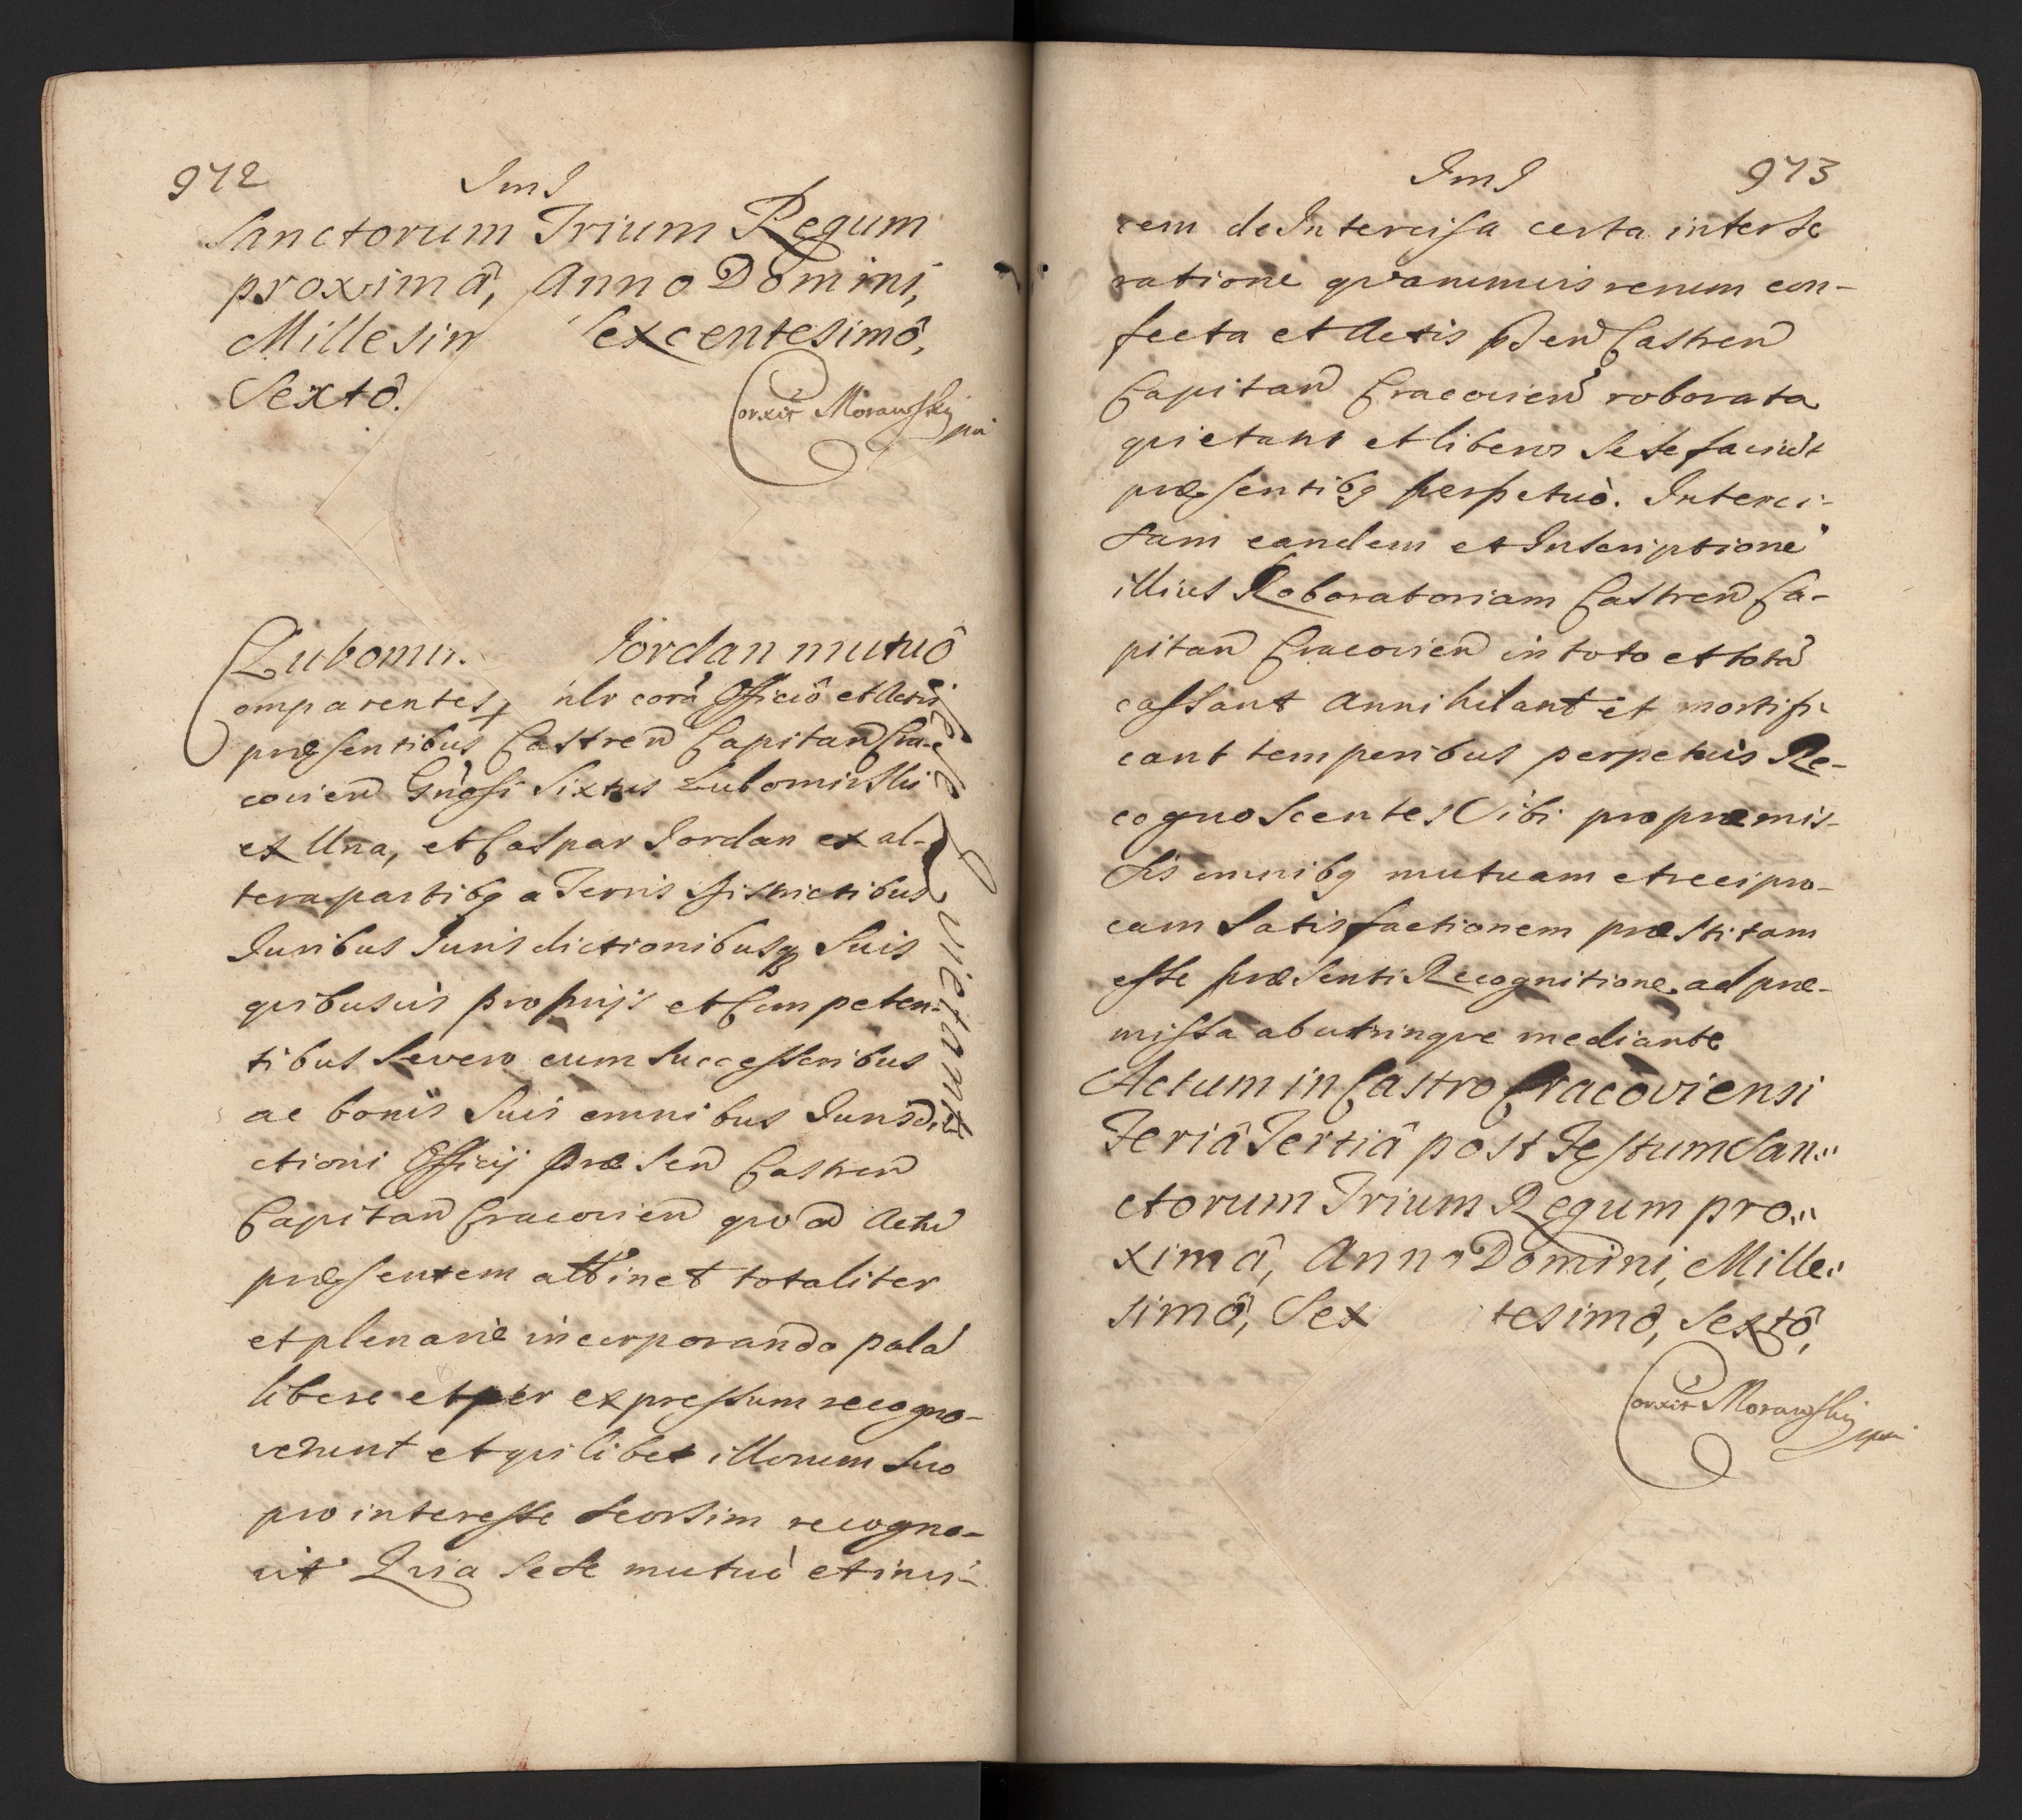 972
JmJ
Sanctorum Trium Regum
proximâ, Anno Domini,
Millesim Sexcentesimô,
Sextô.
Corxit Morawsky
Lubomir. Jordan mutuô
se se quietant
Comparentes corã Officiô et Actis
præsentibus Castren̄ Capitan̄ Cra-
covien̄ Gn̄osi Sixtus Lubomirski
ex Una, et Caspar Jordan ex al-
tera partibq a Terris Districtibus
Juribus Jurisdictionibusq Suis
quibusvis proprijs et Competen-
tibus Severo cum Successoribus
ac bonis Suis omnibus Jurisdi-
ctioni Officij Præsen̄ Castren̄
Capitan̄ Cracovien̄ quo ad Actū
præsentem attinet totaliter
et plenarie incorporando palā
libere et per expressum recogno-
verunt et quilibet illorum suo
pro interesse seorsim recogno-
vit Quia sese mutuò et invi-
JmJ
973
cem de Intercisa certa inter se
ratione quarumvis rerum con-
fecta et Actis pn̄sen̄ Castren̄
Capitan̄ Cracovien̄ roborata
quietant et liberos Sese faciūt
præsentibq perpetuò. Interci-
sam eandem et Inscriptionē
illius Roboratoriam Castren̄ Ca-
pitan̄ Cracovien̄ in toto et totā
cassant Annihilant et mortifi-
cant temporibus perpetuis Re-
cognoscentes Sibi pro præmis-
sis omnibq mutuam et recipro-
cam Satisfactionem præstitam
esse præsenti Recognitione ad præ-
missa ab utrinque mediante
Actum in Castro Cracoviensi
Feriâ Tertiâ post Festum San-
ctorum Trium Regum pro-
ximâ, Anno Domini, Mille-
simô, Sexcentesimô, Sextô,
Corxit Morawsky